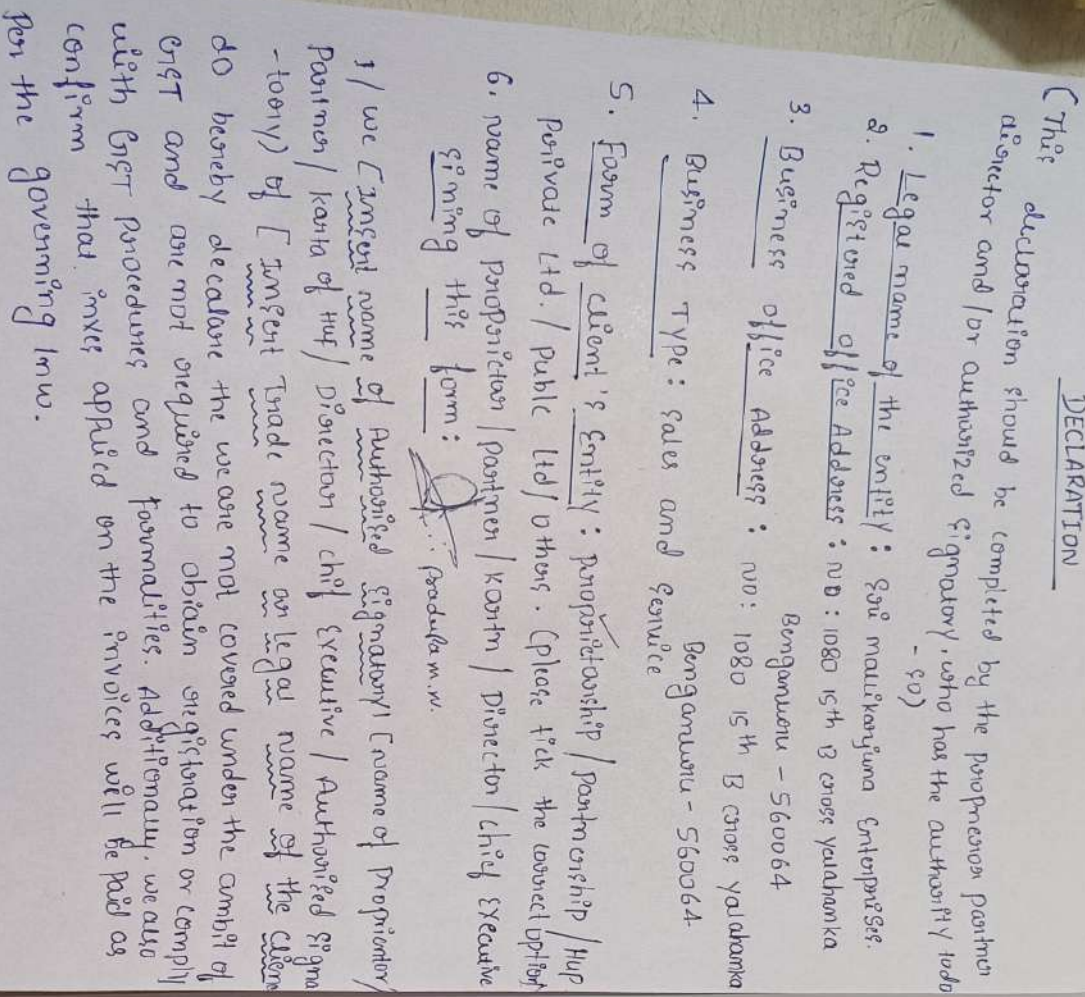 DECLARATION
(This declaration should be completed by the propreror partner
director and/or authorized signatory, who has the authority to do
- so)
1. Legal name of the entity: Sri mallikarjuna Enterprises.
2. Registered office Address: NO: 1080 15th B cross yalahamka
Bengamuru - 560064
3. Business office Address: NO: 1080 15th B cross yalahamka
Bengamuru - 560064
4. Business Type: Sales and Service
5. Form of client's Entity: proprietorship / partnership / HUP
Private Ltd. / Publc Ltd / others. (please tick the correct option)
6. name of proprictor / partner / karta / Director / chief Executive
sinning this form:
pradupa m.n.
I/we [Insert name of Authorised signatory] [name of Proprientor/
Partner / karta of HUF / Director / chif Executive / Authorised signa
-tory) of [Insert Trade name or legal name of the client
do bereby decalare the we are not covered under the ambit of
GST and are not required to obtain registration or comply
with GST procedures and Formalities. Additionally, we also
confirm that inxes appliced on the invoices will be paid as
Per the governing lmw.